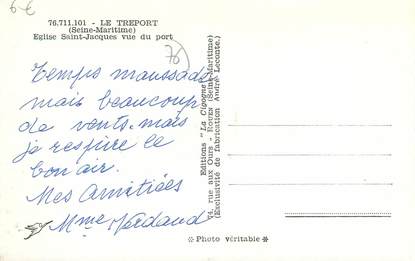 6 €
76.711.101 - LE TREPORT
(Seine-Maritime)
Eglise Saint-Jacques vue du port
76
Temps maussade
mais beaucoup
de vents. mais
je respire le
bon air.
Mes Amitiées
Mme
Editions "La Cigogne"
74, rue aux Ours - ROUEN (Seine-Maritime)
(Exclusivité de fabrication André Leconte.)
* Photo véritable *